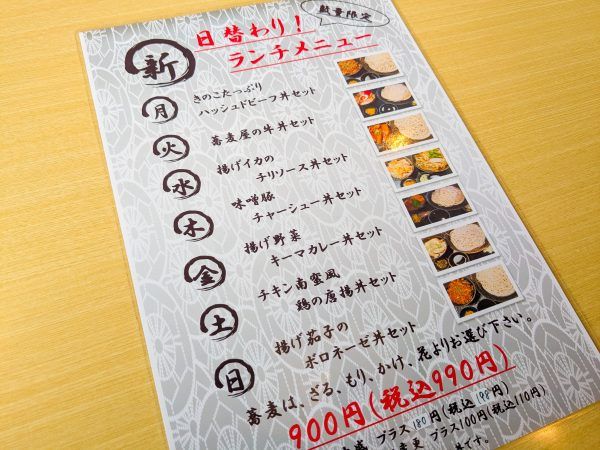 数量限定
新
日替わり!
ランチメニュー
月
きのこたっぷり
ハッシュドビーフ丼セット
火
蕎麦屋の牛丼セット
水
揚げイカの
チリソース丼セット
木
味噌豚
チャーシュー丼セット
金
揚げ野菜
キーマカレー丼セット
土
チキン南蛮風
鶏の唐揚丼セット
日
揚げ茄子の
ボロネーゼ丼セット
蕎麦は、ざる、もり、かけ、花よりお選び下さい。
900円(税込990円)
プラス180円(税込198円)
変更 プラス100円(税込110円)
です。